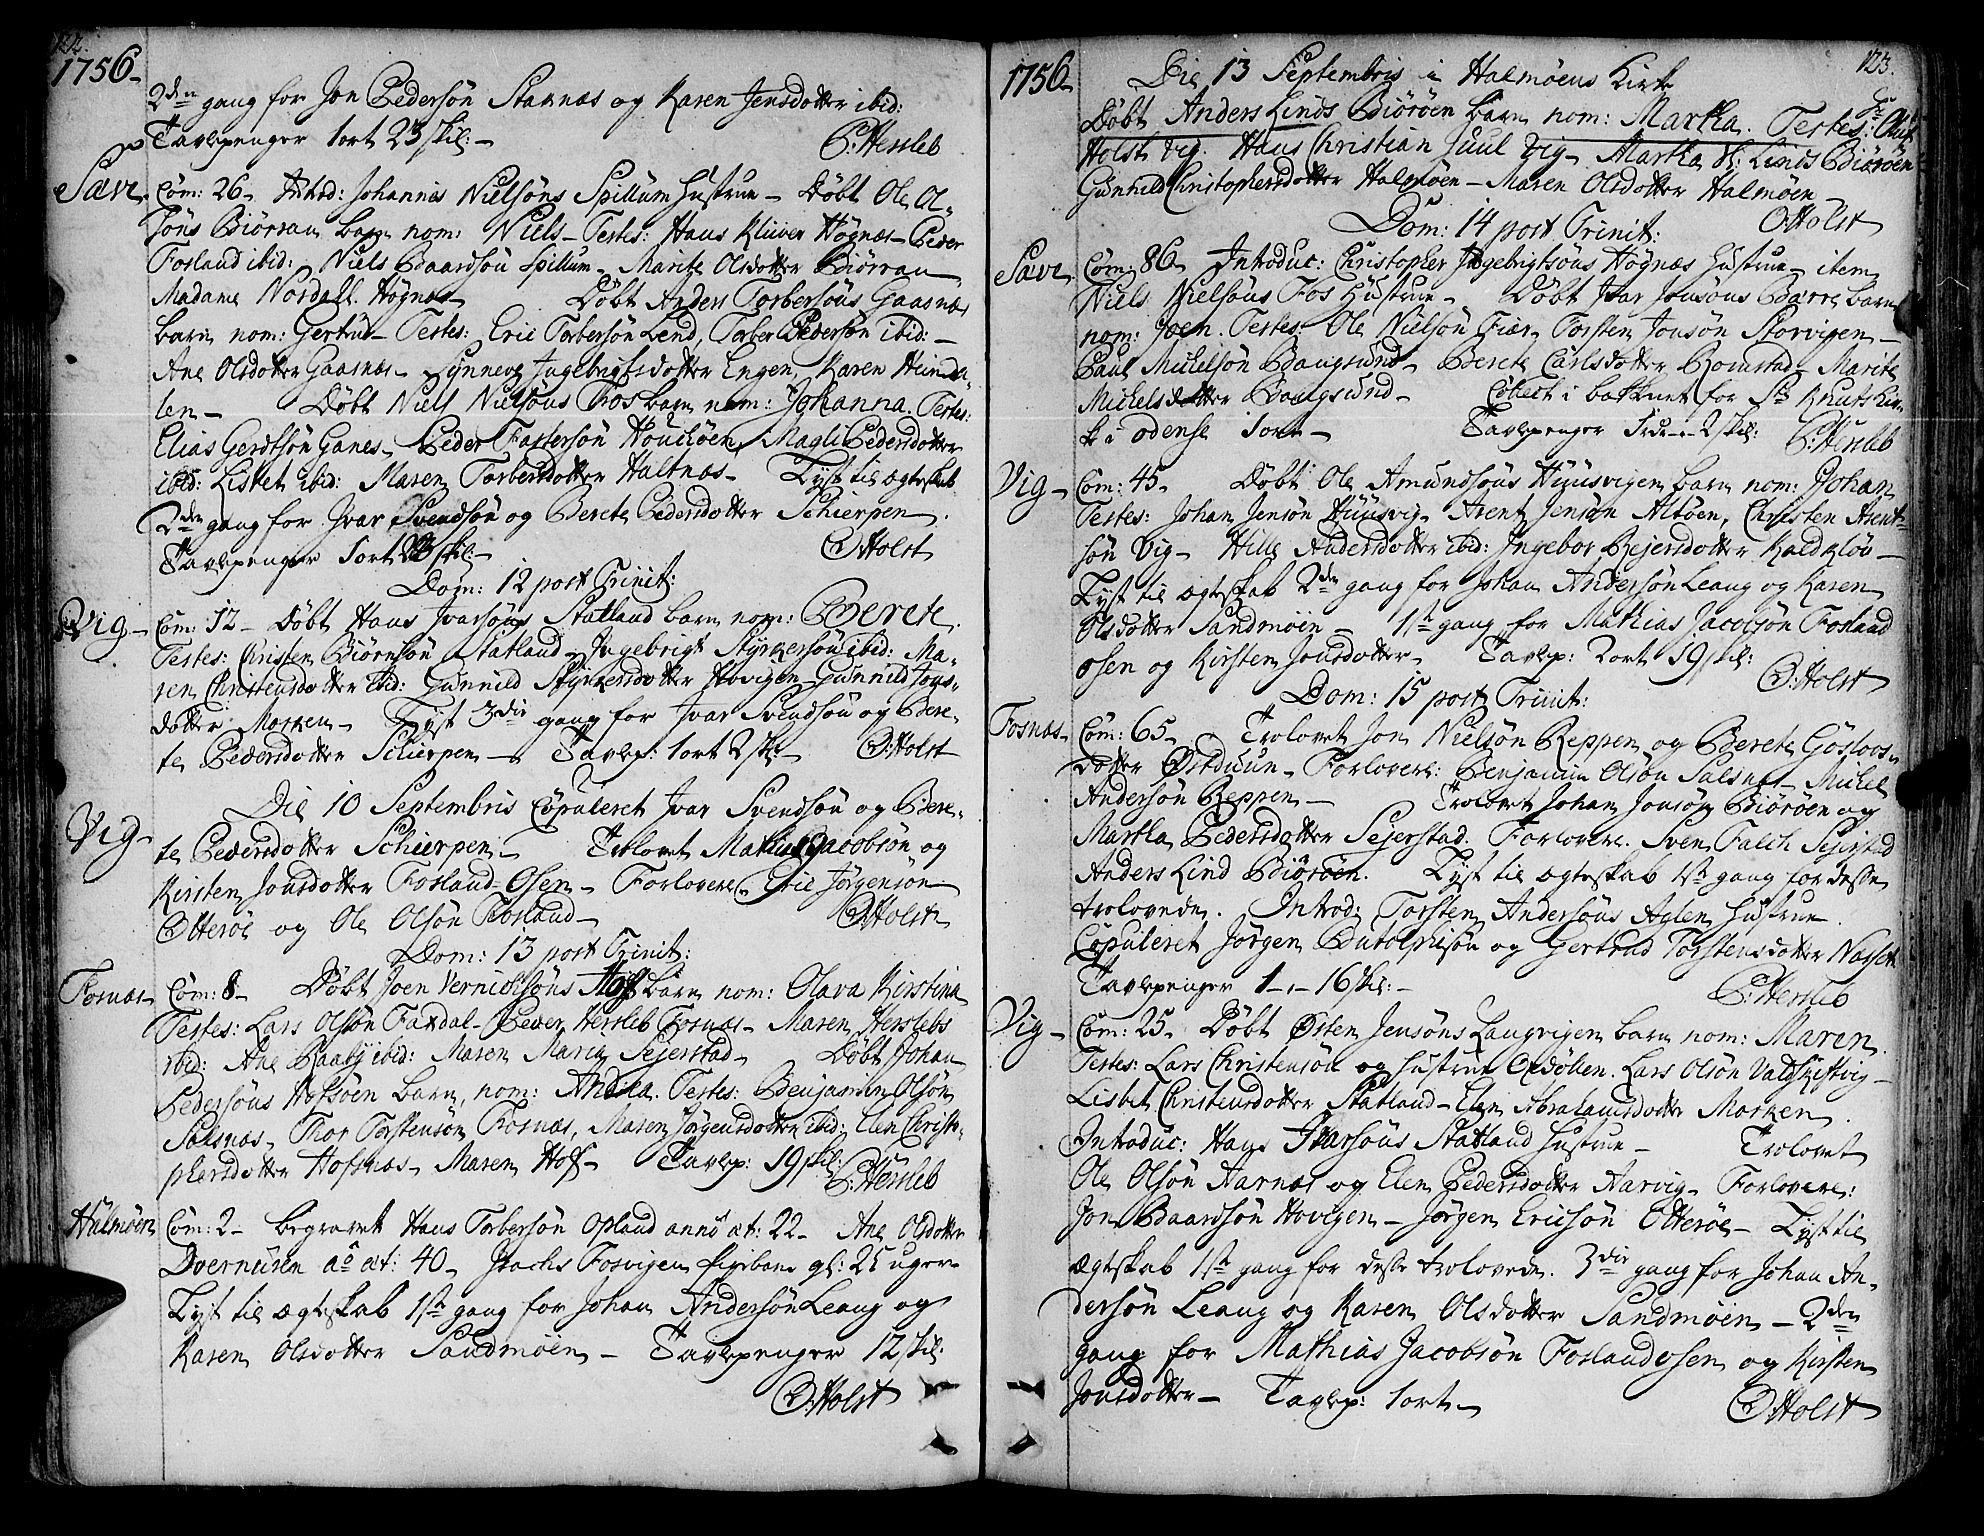 122.
1756
2den gang for Jon Pedersøn Starnæs og Karen Jensdotter ibid:
Tavlepenger 1 ort 23 skil:
P: Hersleb
Sævr. Com: 26 Introd: Johannis Nielsøns Spillum Hustrue Døbt Ole Ol-
søns Biørran barn nom: Niels Testes: Hans Klüver Høgnæs Peder
Fosland ibid: Niels Baardsøn Spillum Marite Olsdotter Biørran
Madame Nordall Høgnæs Døbt Anders Torbersøns Gaasnæs
barn nom: Gertru Testes: Eric Torbersøn Lend, Torber Pedersøn ibid:
Ane Olsdotter Gaasnæs Synnev Ingebrigtsdotter Engen, Karen Hunda-
len Døbt Niels Nielsøns Fos barn nom: Johanna. Testes:
Elias Gerdtsøn Ganes Peder Fastersøn Houchøen Magli Pedersdotter
ibid: Lisbet ibid: Maren Torbersdotter Haltnæs Lyst til ægteskab
2den gang for Ivar Svendsøn og Berete Pedersdotter Schierpen.
Tavlepenger 1 ort skil:
O: Holst
Dom: 12 post Trinit:
Vig Com: 12 Døbt Hans Ivarsøns Statland barn nom: Berete.
Testes: Christen Biørnsøn Statland Ingebrigt Styrkersøn ibid: Ma-
ren Christensdotter ibid: Gunnild Styrkersdotter Hovigen Gunnild Jons-
dotter Morken Lyst 3die gang for Ivar Svendsøn og Bere-
te Pedersdotter Schierpen Tavlep: 1 ort 2 skil: O: Holst
Vig Die 10 Septembris Copuleret Ivar Svendsøn og Bere-
te Pedersdotter Schierpen Trolovet Mathias Jacobsøn og
Kirsten Jonsdotter Fosland-Osen Forlovere Eric Jørgensøn
Otterøe og Ole Olsøn Fosland
O: Holst
Dom: 13 post Trinit:
Fosnæs Com: 8 Døbt Joen Vernichsøns Hof barn nom: Olava Kirstina
Testes: Lars Olsøn Faxdal Peder Hersleb Fosnæs Maren Herslebs
ibid: Ane Raaby ibid: Maren Maria Sejerstad Døbt Johan
Pedersøns Hofsøen barn, nom: Andrea. Testes: Benjamin Olsøn
Salsnæs Thor Torstensøn Fosnæs, Maren Jørgensdotter ibid: Elen Christo-
phersdotter Hofsnæs Maren Hof Tavlep: 19 skil:
P: Hersleb
Halmøen Com: 2 begravet Hans Torbersøn Opland anno æt: 22 Ane Olsdotter
Dvernüsen ao æt: 40 Isachs Fosvigen pigebarn gl: 25 uger
Lyst til ægteskab 1ste gang for Johan Andersøn Leang og
Karen Olsdotter Sandmøen Tavlepenger 12 skil:
O: Holst
123.
1756
Die 13 Septembris i Halmøens Kirke
Døbt Anders Linds Biørøen barn nom: Martha. Testes: Hr Oluf
Holst Vig. Hans Christian Juul Vig Martha Sl: Linds Biørøen
Gunnild Christophersdotter Halmøen Maren Olsdotter Halmøen
O Holst
Dom: 14 post Trinit:
Sævr Com: 86 Introduc: Christopher Ingebrigtsøns Høgnæs Hustrue item
Niels Nielsøns Fos Hustrue Døbt Ivar Jonsøns Barre barn
nom: Joen. Testes: Ole Nielsøn Fiær Torsten Jonsøn Storvigen
Paul Michelsøn Bangsund Berete Carlsdotter Romstad Marite
Michelsdotter Bangsund Collect i bækkenet for St Knuts Kir-
ke i Odense 1 ort Tavlepenger 2 skil:
P: Hersleb
Vig Com: 45 Døbt Ole Amundsøns Hüüsvigen barn nom: Johan
Testes: Johan Jensøn Hüüsvig Arent Jensøn Altøen, Christen Arent-
søn Vig Hille Andersdotter ibid: Ingebor Rejersdotter Kaldkløv
Lyst til ægteskab 2den gang for Johan Andersøn Leang og Karen
Olsdotter Sandmøen 1ste gang for Mathias Jacobsøn Fosland
osen og Kirsten Jonsdotter Tavlep: 2 ort 19 skil:
O: Holst
Dom: 15 post Trinit:
Fosnæs Com: 65 Trolovet Jon Nielsøn Reppen og Berete Gosloos-
dotter Østduun Forlovere: Benjamin Olsøn Salsnæs Michel
Andersøn Reppen Trolovet Johan Jonsøn Biørøen og
Martha Pedersdotter Sejerstad. Forlovere. Sven Falch Sejerstad
Anders Lind Biørøen. Lyst til ægteskab 1ste gang for desse
trolovede. Introd: Torsten Andersøns Aglen Hustrue.
Copuleret Jørgen Butolphsøn og Gertrud Torstensdotter
Tavlepenger 1 - 16 skil:
P: Hersleb
Vig Com: 25 Døbt Østen Jensøns Langvigen barn nom: Maren.
Testes: Lars Christensøn og Hustrue Opdølen. Lars Olsøn
Lisbet Christensdotter Statland Elen Abrahamsdotter Morken.
Introduc: Hans Ivarsøns Statland Hustrue Trolovet
Ole Olsøn Aarnæs og Elen Pedersdotter Aarvig Forlovere:
Jon Baardsøn Hovigen Jørgen Ericsøn Otterøe Lyst til
ægteskab 1ste gang for desse trolovede. 3die gang for Johan An-
dersøn Leang og Karen Olsdotter Sandmøen 2den
gang for Mathias Jacobsøn Foslandosen og Kirsten
Jonsdotter Tavlep: 1 ort
O: Holst